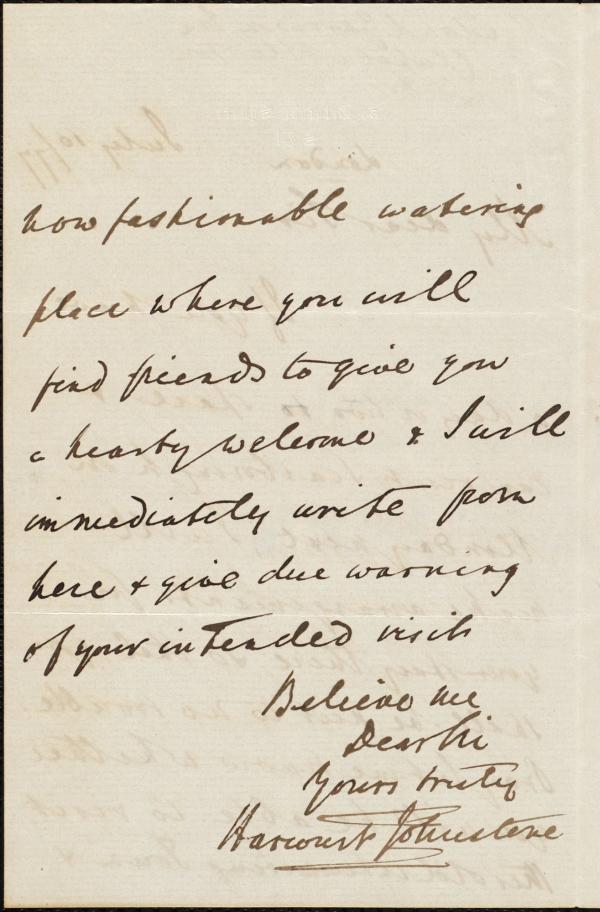 now fashionable watering
place where you will
find friends to give you
a hearty welcome & I will
immediately write from
here & give due warning
of your intended visit
Believe me
Dear Sir
Yours truly
Harcourt Johnstone